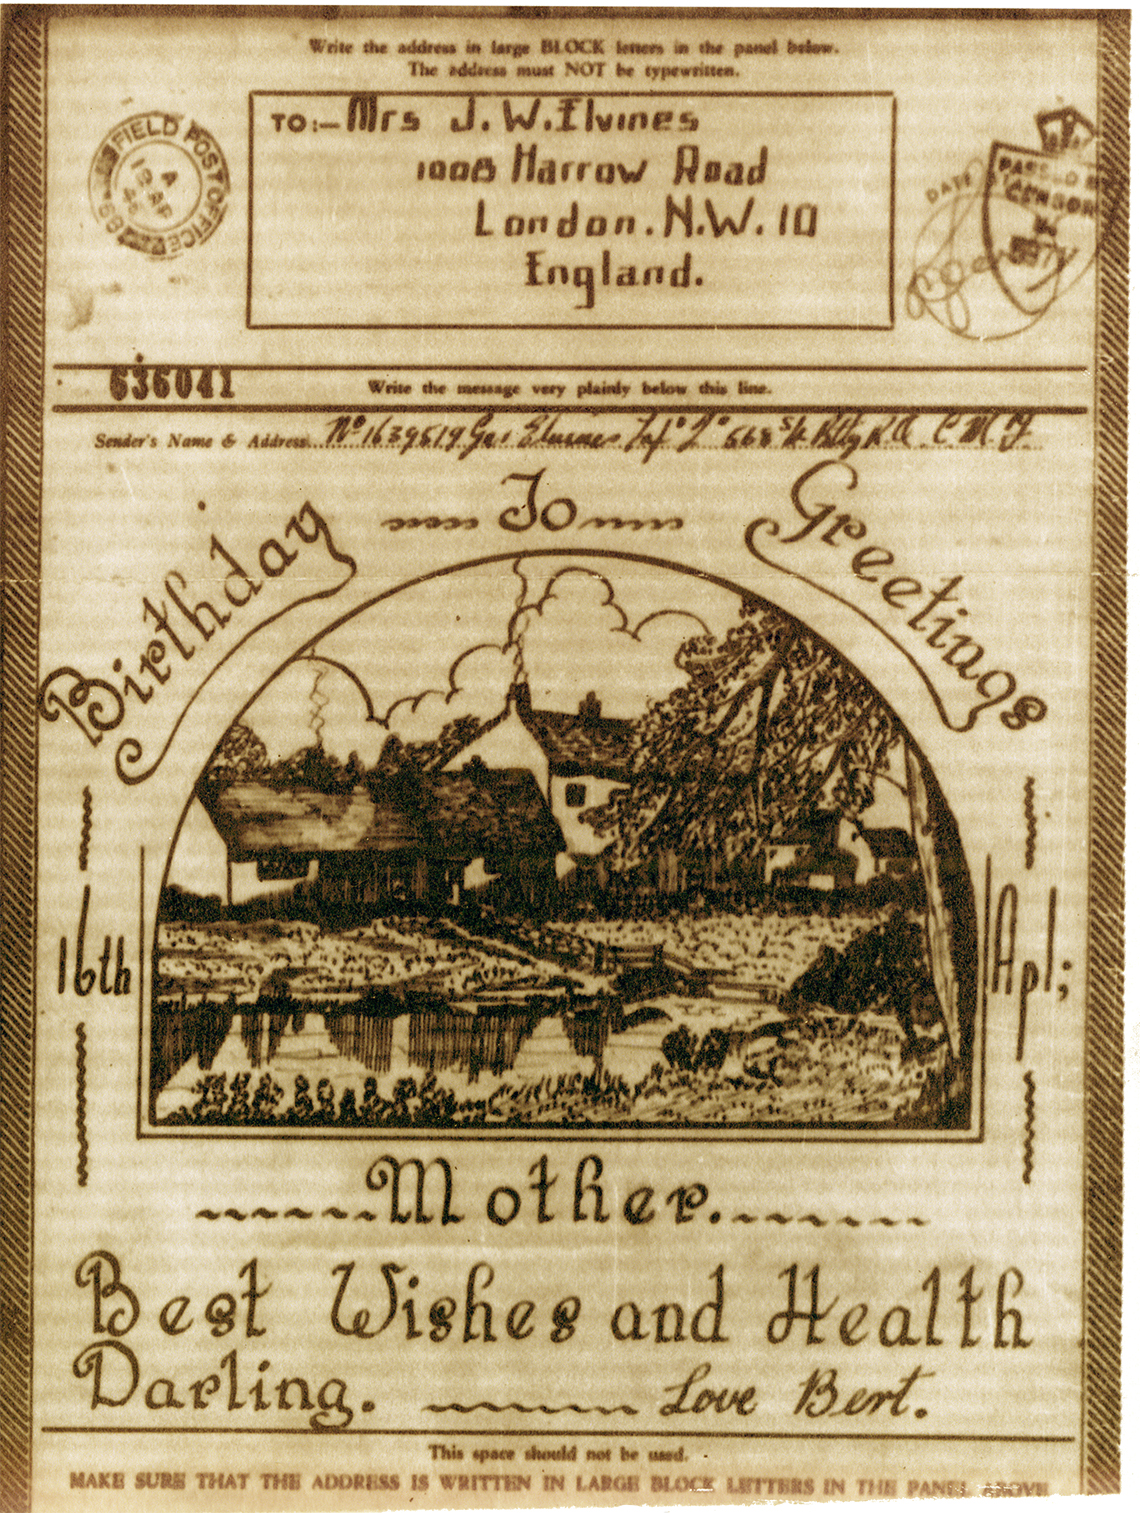 Write the address in large BLOCK letters in the panel below.
The address must NOT be typewritten.
TO:- Mrs J. W. Elvines
100B Harrow Road
London. N.W. 10
England.
FIELD POST OFFICE
A
AP
DATE
PASSED BY
CENSOR
636041
Write the message very plainly below this line.
Sender's Name & Address No 1639519 Gnr Elvines 568 Bty R.A. C.M.F.
Birthday To Greetings
16th Apl;
Mother.
Best Wishes and Health
Darling. Love Bert.
This space should not be used.
MAKE SURE THAT THE ADDRESS IS WRITTEN IN LARGE BLOCK LETTERS IN THE PANEL ABOVE